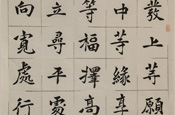 發上等願
中等緣享
等福擇高
立尋平處
向寬處行